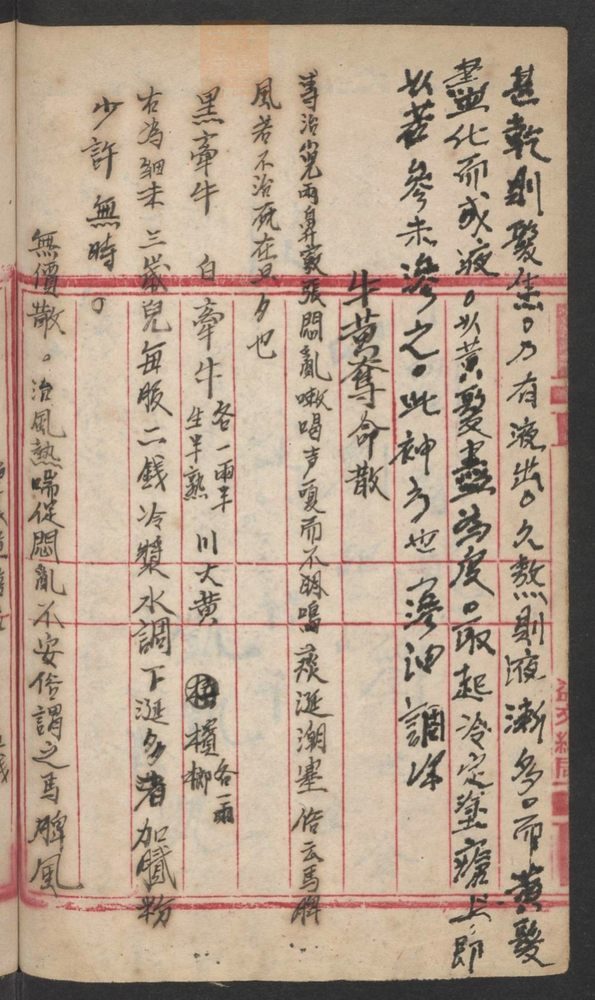 甚乾則髮焦。乃有液出。久熬則液漸多。而黃髮
盡化而成液。以黃髮盡為度。取起冷定塗瘡上。即
以苦參末滲之。此神方也 滲油調抹
牛黃奪命散
專治小兒兩鼻 張悶亂嗽喝声戛而不 鳴痰涎潮塞俗云馬脾
風若不治死在旦夕也
黑牽牛 白牽牛各一兩半生半熟 川大黃 檳榔各一兩
右為細末三歲兒每服二錢冷漿水調下涎多者加膩粉
少許無時。
無價散。治風熱喘促悶亂不安俗謂之馬脾風